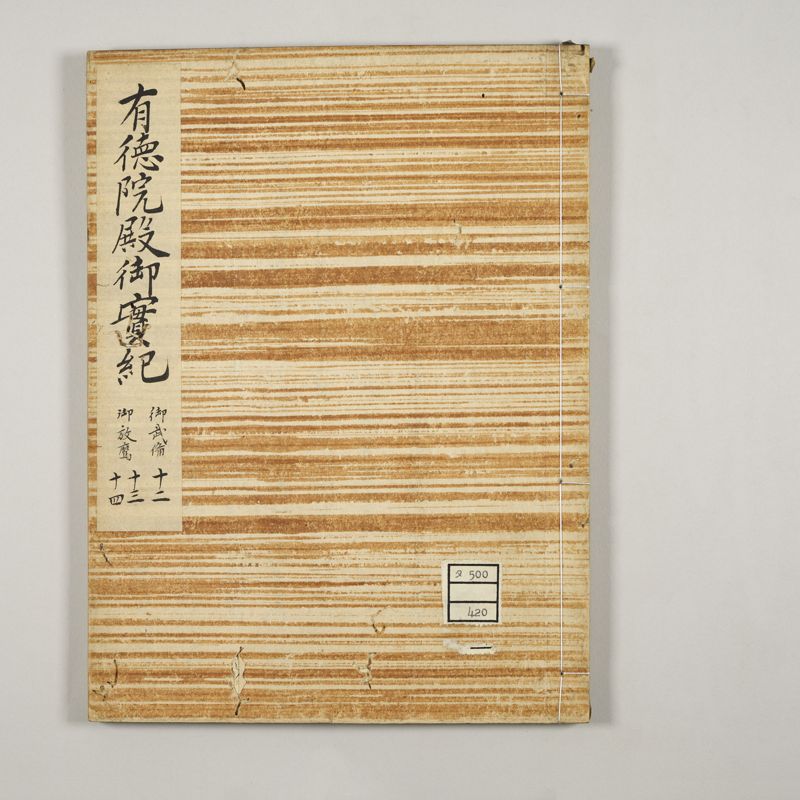 有徳院殿御實紀
御武備 十二
十三
御放鷹 十四
タ 500
420
一